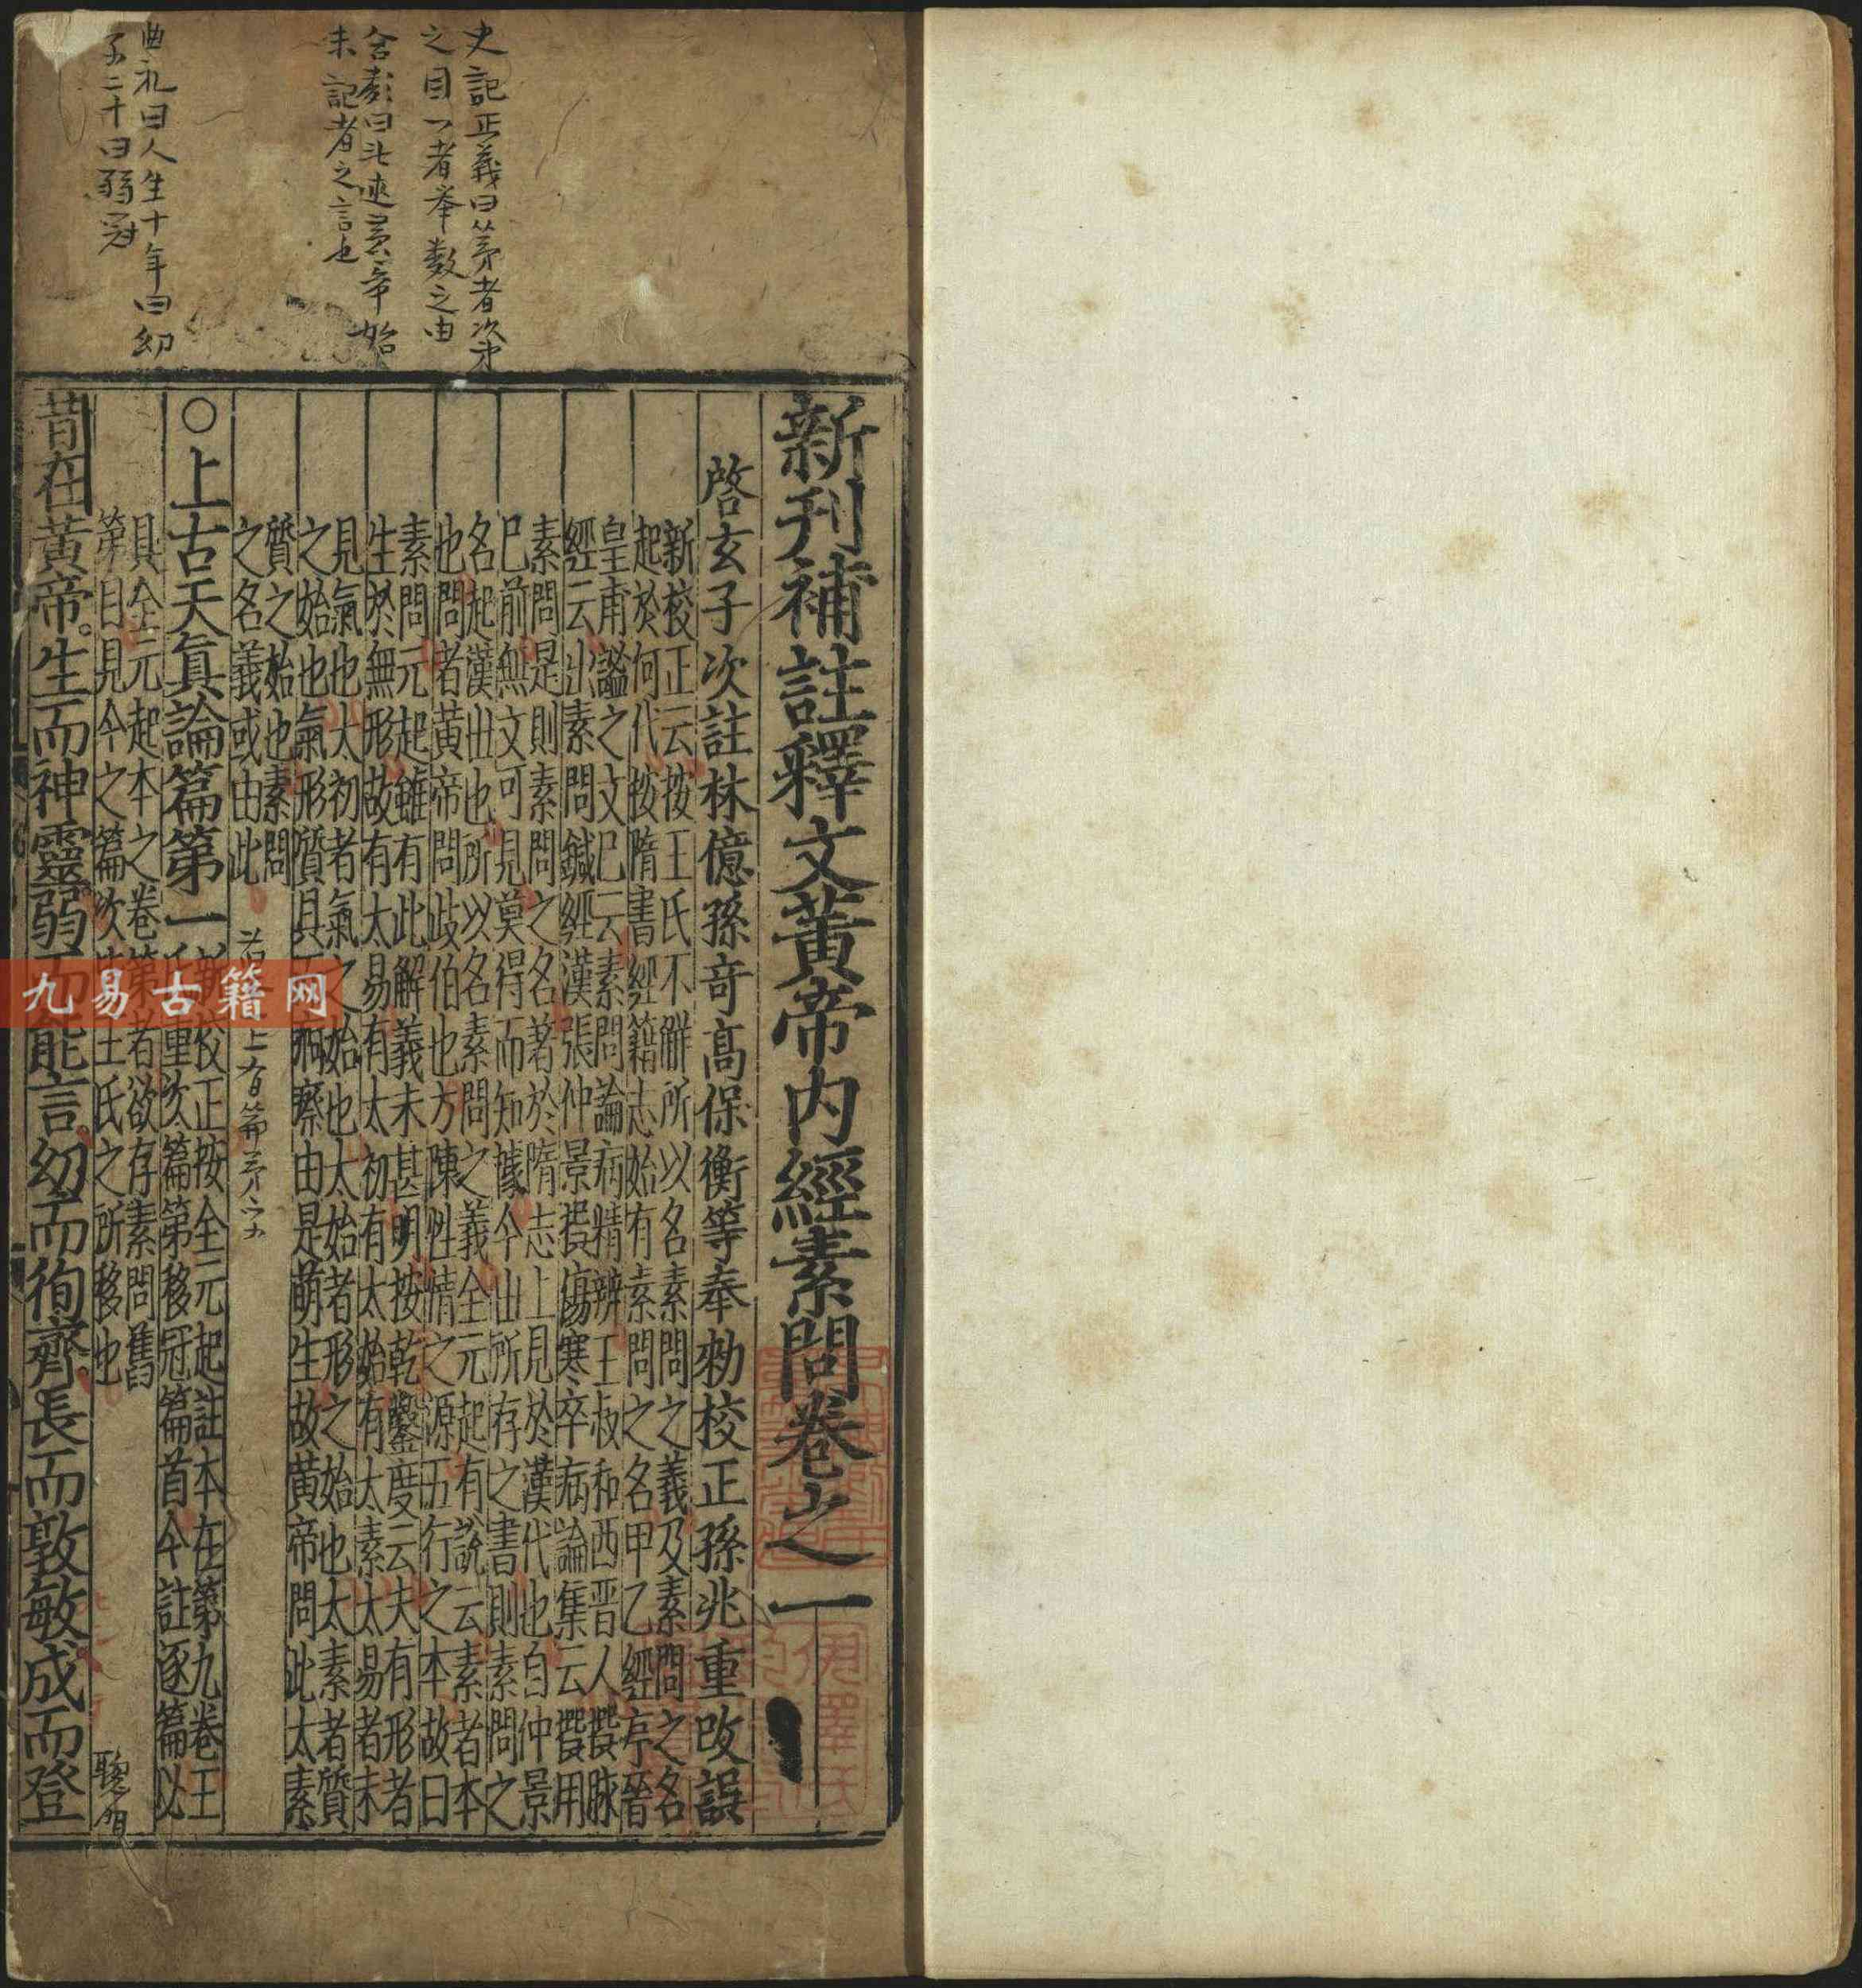 新刊補註釋文黃帝内經素問卷之一
啓玄子次註林億孫竒高保衡等奉勑校正孫兆重改誤
新校正云按王氏不解所以名素問之義及素問之名
起於何代按隋書經籍志始有素問之名甲乙經序晉
皇甫謐之文巳云素問論病精辨王叔和西晉人撰脉
經云出素問鍼經漢張仲景撰傷寒卒病論集云撰用
素問是則素問之名著於隋志上見於漢代也自仲景
巳前無文可見莫得而知據今出所存之書則素問之
名起漢世也所以名素問之義全元起有說云素者本
也問者黃帝問歧伯也方陳性情之源五行之本故曰
素問元起雖有此解義未甚明按乾鑿度云夫有形者
生於無形故有太易有太初有太始有太素太易者未
見氣也太初者氣之始也太始者形之始也太素者質
之始也氣形質具而痾瘵由是萌生故黃帝問此太素
質之始也素問
之名義或由此
○上古天真論篇第一
新校正按全元起註本在第九卷王
氏重次篇第移冠篇首今註逐篇必
具全元起本之卷第者欲存素問舊
第目見今之篇次皆王氏之所移也
昔在黃帝生而神靈弱而能言幼而徇齊長而敦敏成而登
史記正義曰第者次第
之目一者举数之由
未記者之言也
曲礼曰人生十年曰幼
二十曰弱冠
九易古籍网